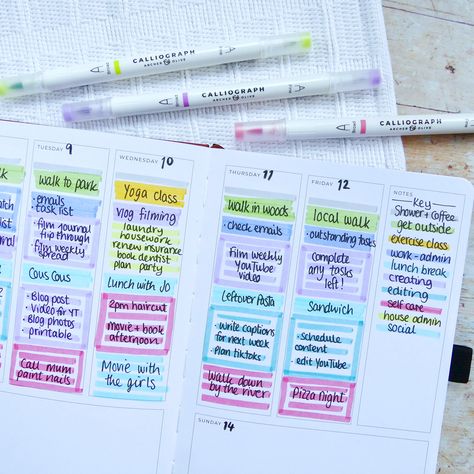 CALLIGRAPH
ARCHER & OLIVE
CALLIGRAPH
ARCHER & OLIVE
CALLIGRAPH
ARCHER & OLIVE
TUESDAY 9
walk to park
· emails
· task list
· film journal
flip through
· film weekly
spread
Cous Cous
· Blog post
· Video for YT
· Blog photos
· printable
Call mum
paint nails
WEDNESDAY 10
Yoga class
Vlog filming
laundry
housework
renew insurance
book dentist
plan party
Lunch with Jo
2pm haircut
Movie + book
afternoon
Movie with
the girls
THURSDAY 11
walk in woods
· check emails
Film weekly
YouTube
video
Leftover Pasta
· write captions
for next week
· Plan tiktoks
Walk down
by the river
FRIDAY 12
local walk
· outstanding tasks
Complete
any tasks
left!
Sandwich
· schedule
content
· edit YouTube
Pizza night
NOTES
Key
Shower + Coffee
get outside
exercise class
work - admin
lunch break
creating
editing
self care
house admin
social
SUNDAY 14